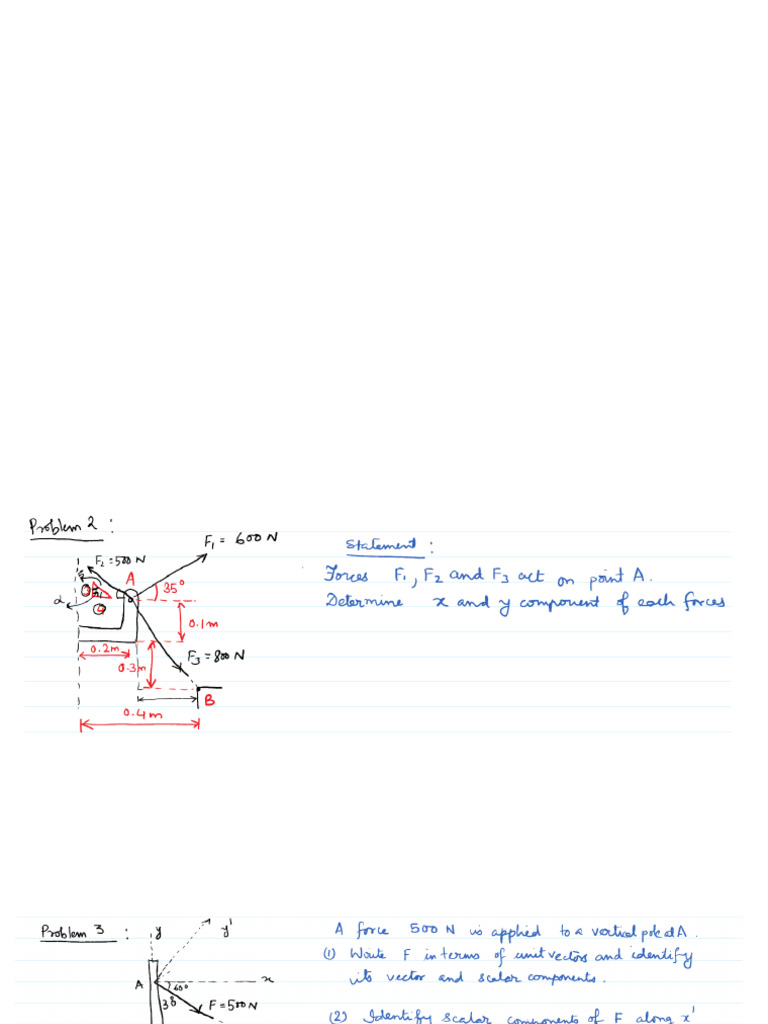 Problem 2 :
F₁ = 600 N
Statement :
F₂ = 500 N
A
Forces F₁, F₂ and F₃ act on point A.
35°
α
Determine x and y component of each forces
0.1m
0.2m
F₃ = 800 N
0.3m
B
0.4m
Problem 3 :
y
y'
A force 500 N is applied to a vertical pole at A.
(1) Write F in terms of unit vectors and identify
its vector and scalar components.
A
x
60°
F = 500N
(2) Identify scalar components of F along x'